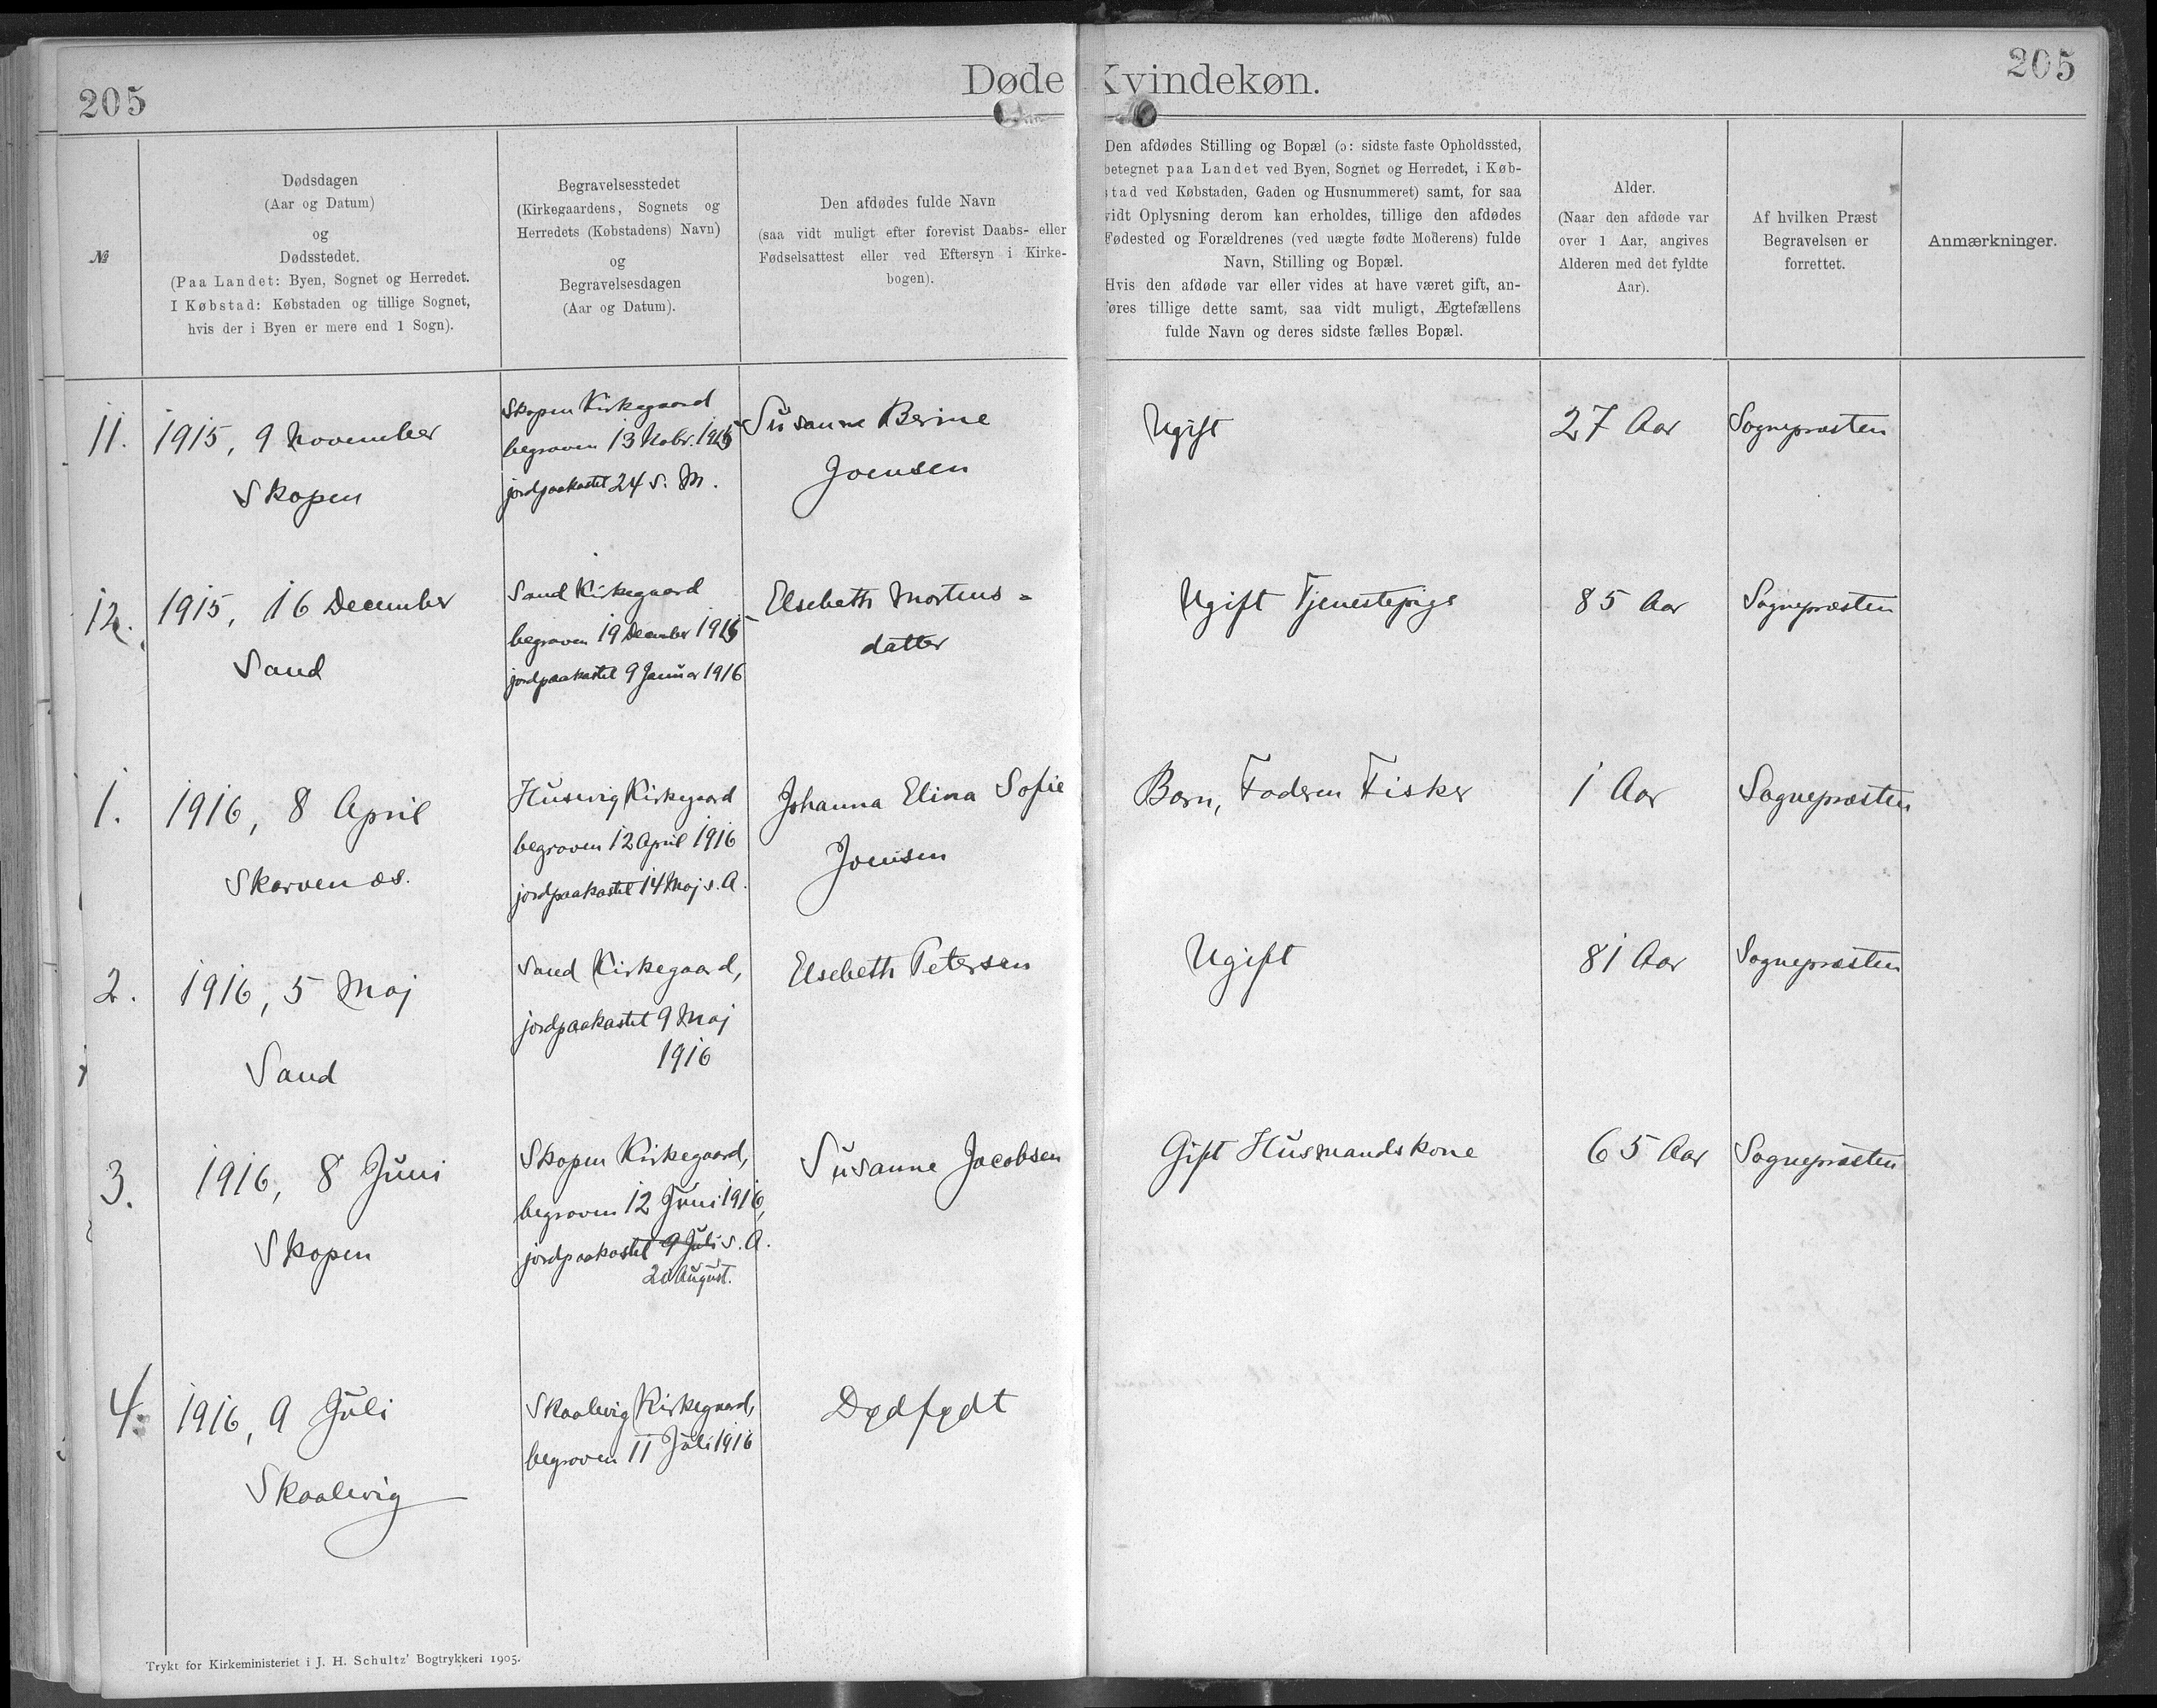 205
Døde Kvindekøn.
205
№
Dødsdagen
(Aar og Datum)
og
Dødsstedet.
(Paa Landet: Byen, Sognet og Herredet.
I Købstad: Købstaden og tillige Sognet,
hvis der i Byen er mere end 1 Sogn).
Begravelsesstedet
(Kirkegaardens, Sognets og
Herredets (Købstadens) Navn)
og
Begravelsesdagen
(Aar og Datum).
Den afdødes fulde Navn
(saa vidt muligt efter forevist Daabs- eller
Fødselsattest eller ved Eftersyn i Kirke-
bogen).
Den afdødes Stilling og Bopæl (ɔ: sidste faste Opholdssted,
betegnet paa Landet ved Byen, Sognet og Herredet, i Køb-
stad ved Købstaden, Gaden og Husnummeret) samt, for saa
vidt Oplysning derom kan erholdes, tillige den afdødes
Fødested og Forældrenes (ved uægte fødte Moderens) fulde
Navn, Stilling og Bopæl.
Hvis den afdøde var eller vides at have været gift, an-
føres tillige dette samt, saa vidt muligt, Ægtefællens
fulde Navn og deres sidste fælles Bopæl.
Alder.
(Naar den afdøde var
over 1 Aar, angives
Alderen med det fyldte
Aar).
Af hvilken Præst
Begravelsen er
forrettet.
Anmærkninger.
11.
1915, 9 November
Skopen
Skopen Kirkegaard
begraven 13 Nobr. 1915
jordpaakastet 24 s. M.
Susanne Berine
Joensen
Ugift
27 Aar
Sognepræsten
12.
1915, 16 December
Sand
Sand Kirkegaard
begraven 19 December 1915
jordpaakastet 9 Januar 1916
Elsebeth Mortens=
datter
Ugift Tjenestepige
85 Aar
Sognepræsten
1.
1916, 8 April
Skarvenæs.
Huservig Kirkegaard
begraven 12 April 1916
jordpaakastet 14 Maj s. A.
Johanna Elina Sofie
Joensen
Barn, Faderen Fisker
1 Aar
Sognepræsten
2.
1916, 5 Maj
Sand
Sand Kirkegaard,
jordpaakastet 9 Maj
1916
Elsebeth Petersen
Ugift
81 Aar
Sognepræsten
3.
1916, 8 Juni
Skopen
Skopen Kirkegaard,
begraven 12 Juni 1916,
jordpaakastet 9 Juli s. A.
20 August.
Susanne Jacobsen
Gift Husmandskone
65 Aar
Sognepræsten
4.
1916, 9 Juli
Skaalevig
Skaalevig Kirkegaard,
begraven 11 Juli 1916
Dødfødt
Trykt for Kirkeministeriet i J. H. Schultz' Bogtrykkeri 1905.